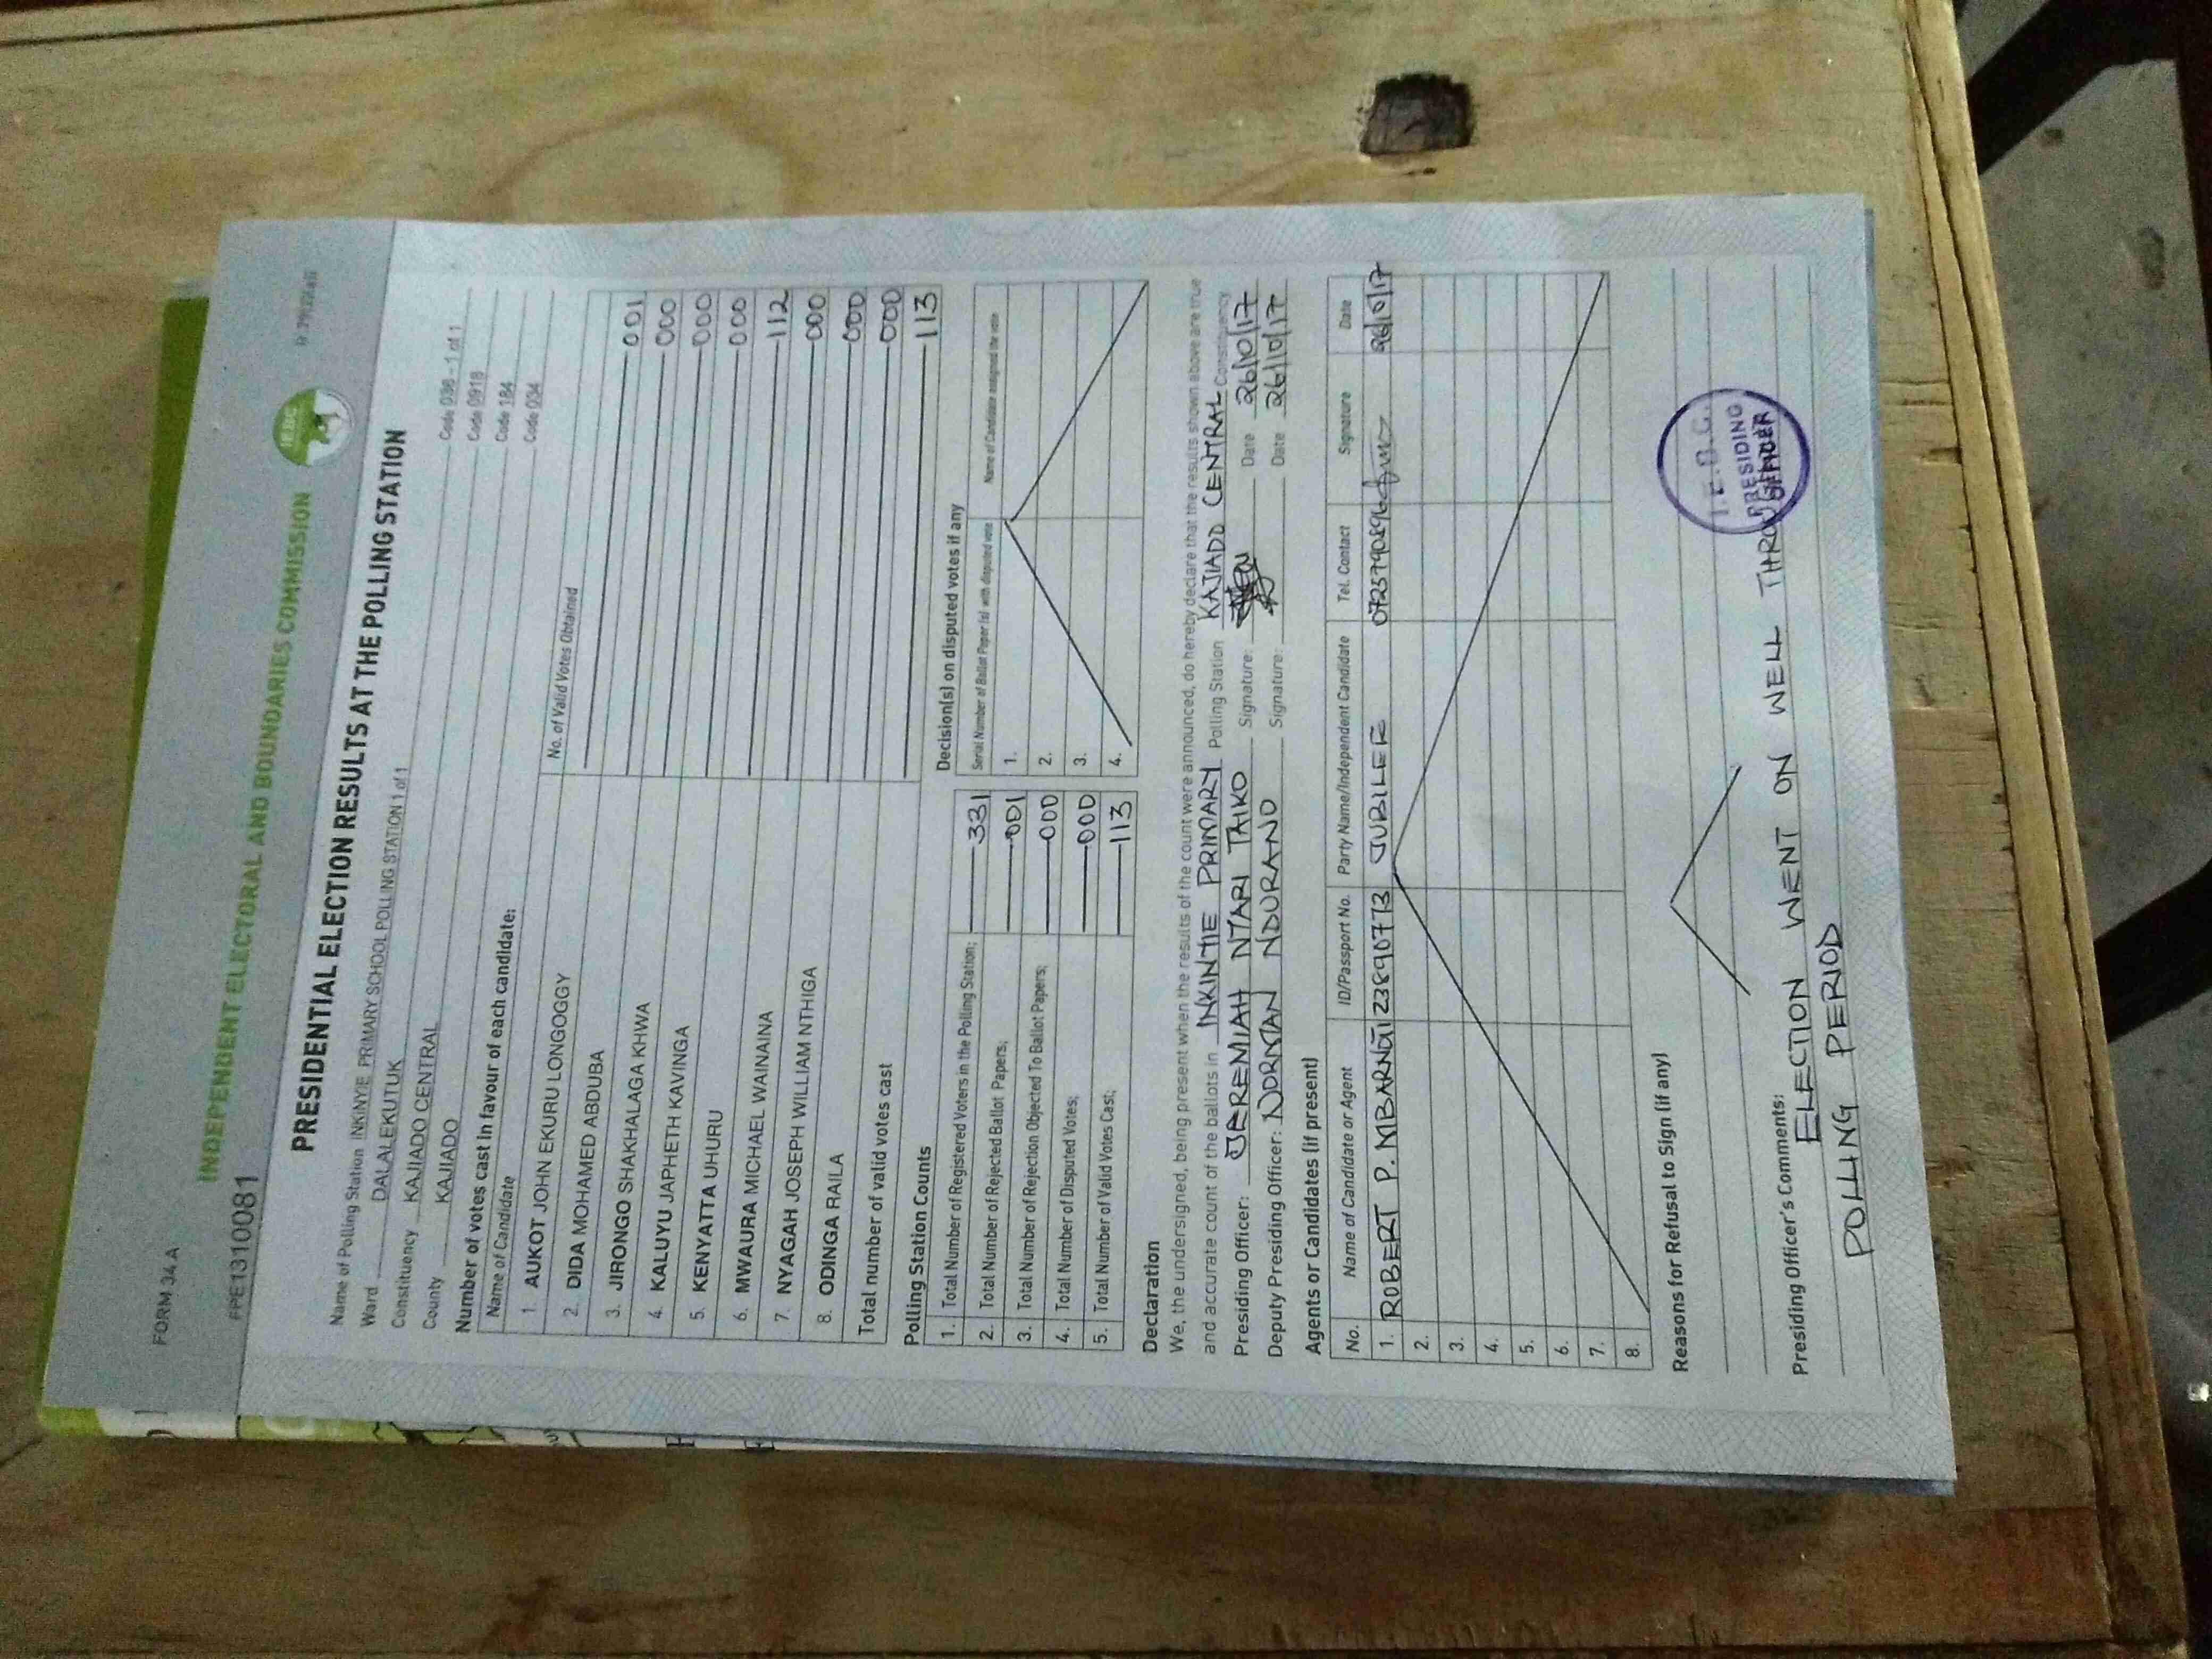 FORM 34 A
INDEPENDENT ELECTORAL AND BOUNDARIES COMMISSION
IEBC
FPE1310081
PRESIDENTIAL ELECTION RESULTS AT THE POLLING STATION
Name of Polling Station INKINYIE PRIMARY SCHOOL POLLING STATION 1 of 1 Code 036 - 1 of 1
Ward DALALEKUTUK Code 0918
Constituency KAJIADO CENTRAL Code 184
County KAJIADO Code 034
Number of votes cast in favour of each candidate:
Name of Candidate No. of Valid Votes Obtained
1. AUKOT JOHN EKURU LONGOGGY 001
2. DIDA MOHAMED ABDUBA 000
3. JIRONGO SHAKHALAGA KHWA 000
4. KALUYU JAPHETH KAVINGA 000
5. KENYATTA UHURU 112
6. MWAURA MICHAEL WAINAINA 000
7. NYAGAH JOSEPH WILLIAM NTHIGA 000
8. ODINGA RAILA 000
Total number of valid votes cast 113
Polling Station Counts
1. Total Number of Registered Voters in the Polling Station; 331
2. Total Number of Rejected Ballot Papers; 001
3. Total Number of Rejection Objected To Ballot Papers; 000
4. Total Number of Disputed Votes; 000
5. Total Number of Valid Votes Cast; 113
Decision(s) on disputed votes if any
Serial Number of Ballot Paper (s) with disputed vote Name of Candidate assigned the vote
1.
2.
3.
4.
Declaration
We, the undersigned, being present when the results of the count were announced, do hereby declare that the results shown above are true
and accurate count of the ballots in INKINTIE PRIMARY Polling Station KAJIADO CENTRAL Constituency
Presiding Officer: JEREMIAH NTARI TAIKO Signature: Date 26/10/17
Deputy Presiding Officer: NORMAN NDURANO Signature: Date 26/10/17
Agents or Candidates (if present)
No. Name of Candidate or Agent ID/Passport No. Party Name/Independent Candidate Tel. Contact Signature Date
1. ROBERT P. MBARNOTI 23890773 JUBILEE 0723790896 26/10/17
2.
3.
4.
5.
6.
7.
8.
Reasons for Refusal to Sign (if any)
I.E.B.C.
PRESIDING
OFFICER
Presiding Officer's Comments:
ELECTION WENT ON WELL THROUGHOUT
POLLING PERIOD